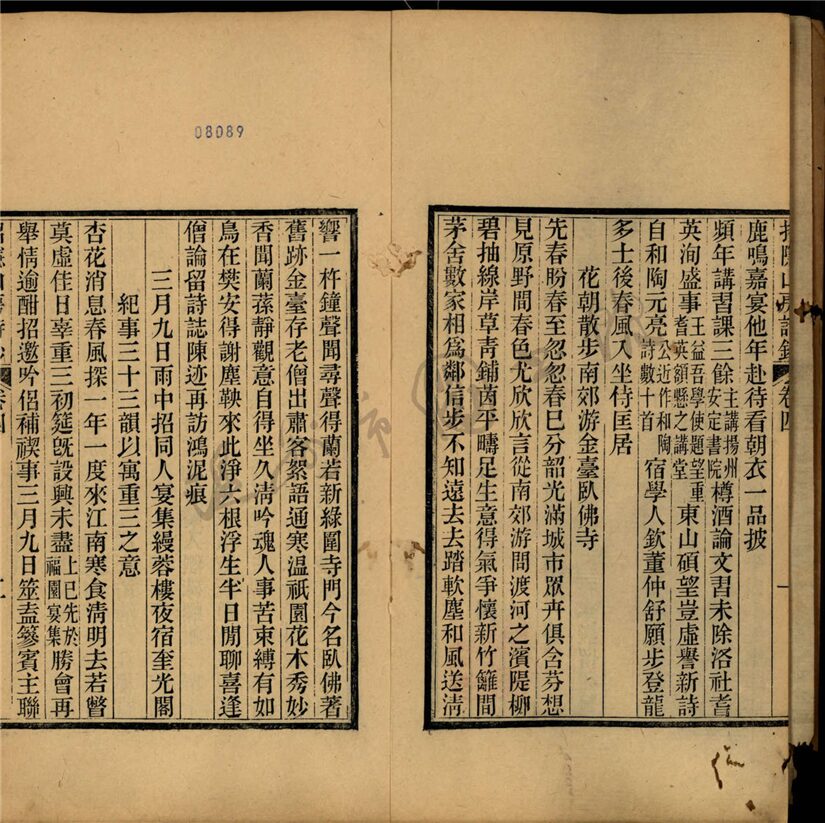 08089
鹿鳴嘉宴他年赴待看朝衣一品披
頻年講習課三餘主講揚州安定書院樽酒論文習未除洛社耆
英洵盛事王益吾學使題望重耆英額懸之講堂東山碩望豈虛譽新詩
自和陶元亮公近作和陶詩數十首宿學人欽董仲舒願步登龍
多士後春風入坐侍匡居
花朝散步南郊游金臺臥佛寺
先春盼春至忽忽春巳分韶光滿城市眾卉俱含芬想
見原野間春色尤欣欣言從南郊游問渡河之濱隄柳
碧抽線岸草靑鋪茵平疇足生意得氣爭懷新竹籬間
茅舍數家相爲鄰信步不知遠去去踏軟塵和風送淸
卷四
響一杵鐘聲聞尋聲得蘭若新綠圍寺門今名臥佛著
舊跡金臺存老僧出肅客絮語通寒溫祇園花木秀妙
香聞蘭蓀靜觀意自得坐久淸吟魂人事苦束縛有如
鳥在樊安得謝塵鞅來此淨六根浮生半日閒聊喜逢
僧論留詩誌陳迹再訪鴻泥痕
三月九日雨中招同人宴集縵蓉樓夜宿奎光閣
紀事三十三韻以寓重三之意
杏花消息春風探一年一度來江南寒食淸明去若瞥
莫虛佳日辜重三初筵旣設興未盡上巳先於福園宴集勝會再
舉情逾酣招邀吟侶補禊事三月九日筮盍簪賓主聯